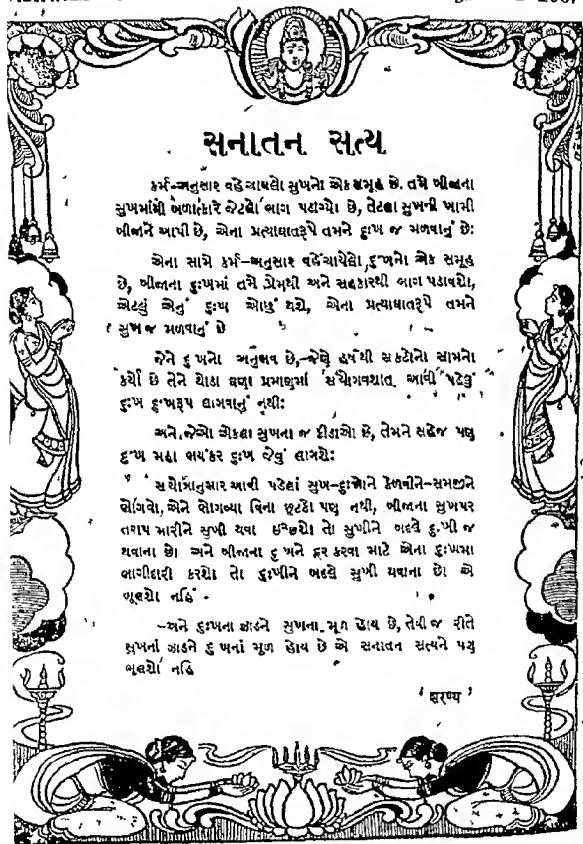 સનાતન સત્ય
કર્મ-અનુસાર વહેંચાયલો સુખનો એક સમૂહ છે. તમે બીજાના
સુખમાંથી બળાત્કારે જેટલો ભાગ પડાવ્યો છે, તેટલા સુખની ખામી
બીજાને આપી છે, એના પ્રત્યાઘાતરૂપે તમને દુઃખ જ મળવાનું છે:
એના સામે કર્મ-અનુસાર વહેંચાયેલો દુઃખનો એક સમૂહ
છે, બીજાના દુઃખમાં તમે પ્રેમથી અને સહકારથી ભાગ પડાવશો,
એટલું એનું દુઃખ ઓછું થશે, એના પ્રત્યાઘાતરૂપે તમને
સુખ જ મળવાનું છે
જેને દુખનો અનુભવ છે,-જેણે હર્ષથી સકટોનો સામનો
કર્યો છે તેને થોડા ઘણા પ્રમાણમાં સંયોગવશાત્ આવી પડેલું
દુઃખ દુઃખરૂપ લાગવાનું નથી:
અને જેઓ એકલા સુખના જ કીડાઓ છે, તેમને સહેજ પણ
દુઃખ મહા ભયંકર દુઃખ જેવું લાગશે:
સંયોગાનુસાર આવી પડેલાં સુખ-દુઃખોને કેળવીને-સમજીને
ભોગવો, એને ભોગવ્યા વિના છૂટકો પણ નથી, બીજાના સુખપર
તરાપ મારીને સુખી થવા ઈચ્છશો તો સુખીને બદલે દુઃખી જ
થવાના છો અને બીજાના દુખને દૂર કરવા માટે એના દુઃખમા
ભાગીદારી કરશો તો દુઃખીને બદલે સુખી થવાના છો એ
ભૂલશો નહિ
-અને દુઃખના ઝાડને સુખના મૂળ હોય છે, તેવી જ રીતે
સુખનાં ઝાડને દુખનાં મૂળ હોય છે એ સનાતન સત્યને પણ
ભૂલશો નહિ
'શરણ્ય'